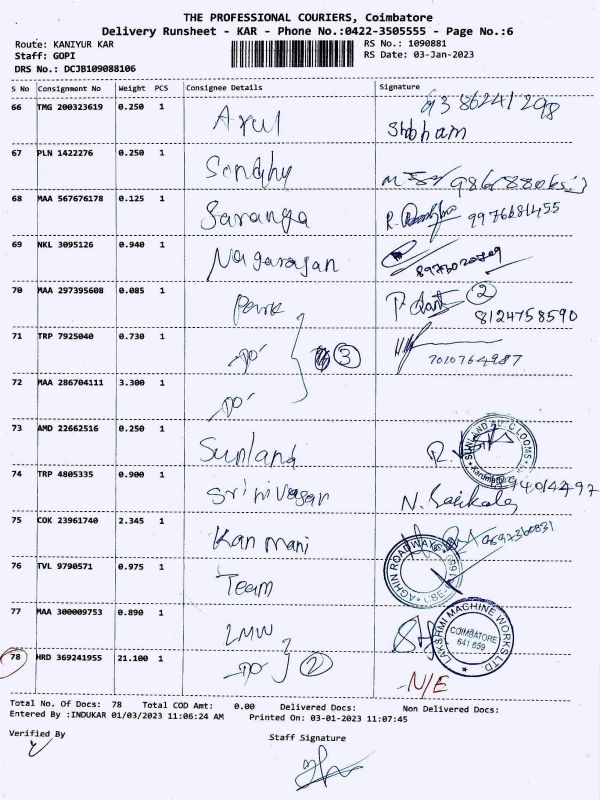 THE PROFESSIONAL COURIERS, Coimbatore
Delivery Runsheet - KAR - Phone No.:0422-3505555 - Page No.:6
Route: KANIYUR KAR RS No.: 1090881
Staff: GOPI RS Date: 03-Jan-2023
DRS No.: DCJB109088106
S No Consignment No Weight PCS Consignee Details Signature
66 TMG 200323619 0.250 1 Arul
Shobham
67 PLN 1422276 0.250 1
68 MAA 567676178 0.125 1 Saranga R. 9976681455
69 NKL 3095126 0.940 1 Nagarajan
70 MAA 297395608 0.085 1 2
8124758590
71 TRP 7925040 0.730 1 -Do- 3 7010764987
72 MAA 286704111 3.300 1 -Do-
73 AMD 22662516 0.250 1 Sunland R.
74 TRP 4805335 0.900 1 Srinivasan N. Sasikala
75 COK 23961740 2.345 1 Kanmani
76 TVL 9790571 0.975 1 Team AGHIN ROADWAYS CBE
77 MAA 300009753 0.890 1 LMW LAKSHMI MACHINE WORKS LTD. COIMBATORE 641 659
78 HRD 369241955 21.100 1 -Do- 2 N/E
Total No. Of Docs: 78 Total COD Amt: 0.00 Delivered Docs: Non Delivered Docs:
Entered By :INDUKAR 01/03/2023 11:06:24 AM Printed On: 03-01-2023 11:07:45
Verified By Staff Signature